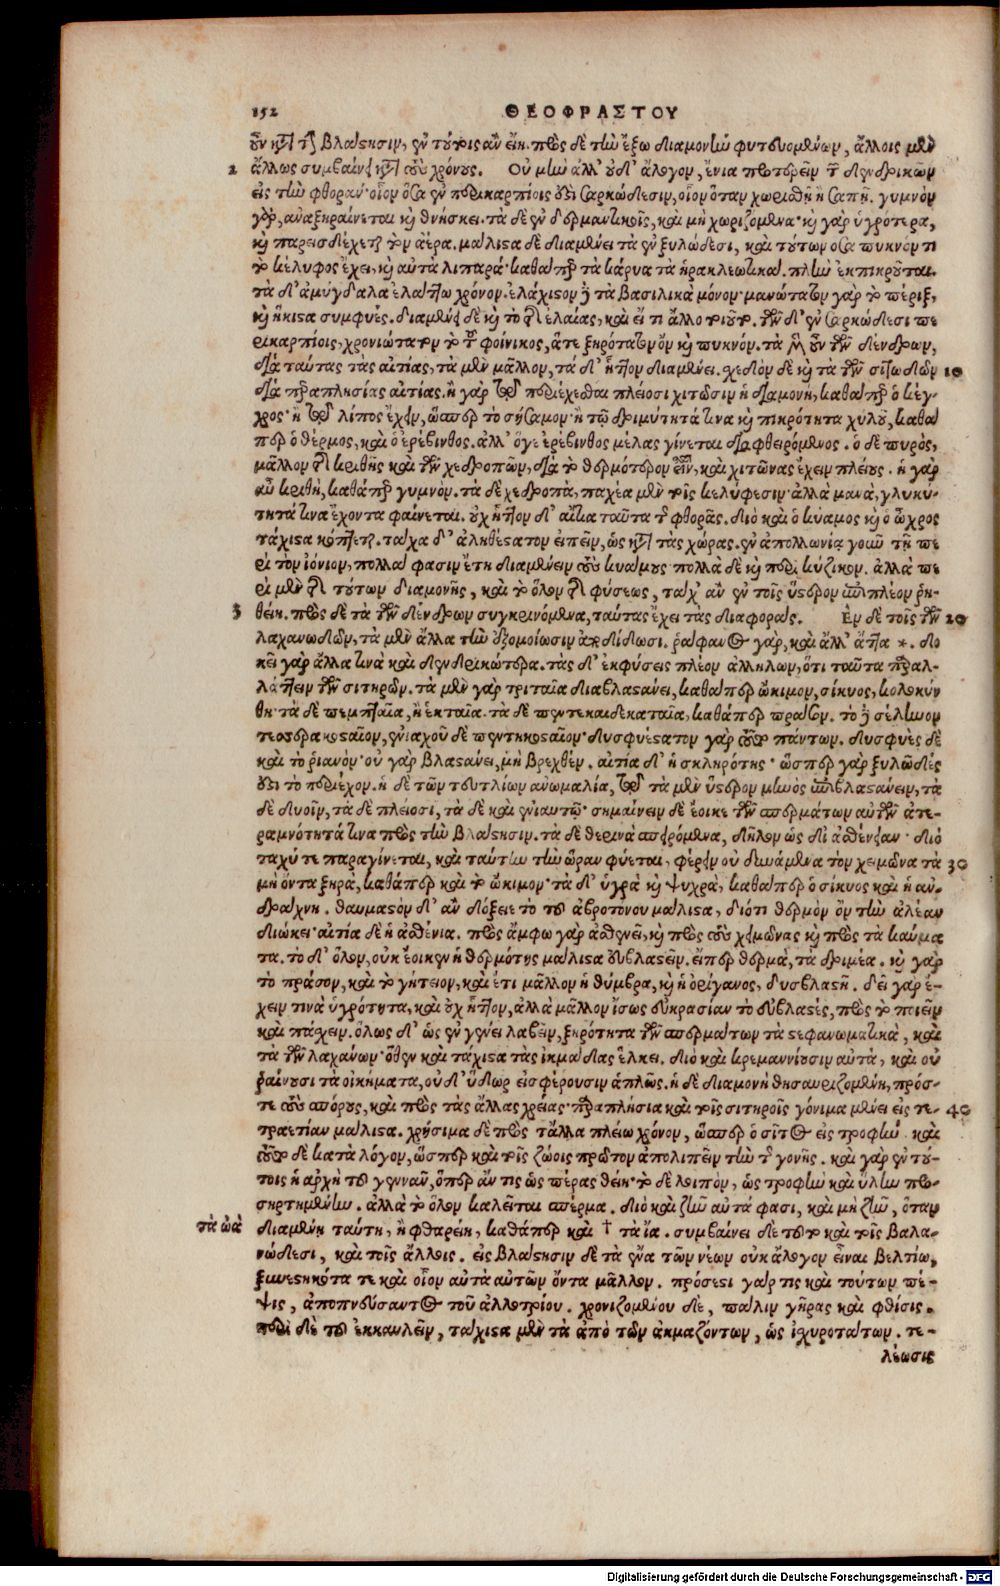 152 ΘΕΟΦΡΑΣΤΟΥ
οὖν κατὰ τὴν βλάστησιν, ἐν τούτοις ἂν εἴη. πρὸς δὲ τὴν ἔξω διαμονὴν φυτευομένων, ἄλλοις μὲν
2 ἄλλως συμβαίνει κατὰ τοὺς χρόνους. Οὐ μὴν ἀλλ' οὐδ' ἄλογον, ἔνια προτερεῖν τῶν δενδρικῶν
εἰς τὴν φθοράν· οἷον ὅσα ἐν περικαρπίοις οὐσι σαρκώδεσιν, οἷον ὅταν χωρισθῇ ἢ σαπῇ. γυμνὸν
γὰρ, ἀναξηραίνεται καὶ θνήσκει. τὰ δὲ ἐν δερματικοῖς, καὶ μὴ χωριζόμενα· καὶ γὰρ ὑγρότερα,
καὶ παρεισδέχεται τὸν ἀέρα. μάλιστα δὲ διαμένει τὰ ἐν ξυλώδεσι, καὶ τούτων ὅσα πυκνόν τι
τὸ κέλυφος ἔχει, καὶ αὐτὰ λιπαρά· καθάπερ τὰ κάρυα τὰ ἡρακλεωτικά. πλὴν ἐκπικροῦται.
τὰ δ' ἀμύγδαλα ἐλάττω χρόνον. ἐλάχιστον δὲ τὰ βασιλικὰ μόνον· μανώτατον γὰρ τὸ πέριξ,
καὶ ἥκιστα συμφυές. διαμένει δὲ καὶ τὸ τῆς ἐλαίας, καὶ εἴ τι ἄλλο τοιοῦτο. τῶν δ' ἐν σαρκώδεσι πε
ρικαρπίοις, χρονιώτατον τὸ τοῦ φοίνικος, ἅτε ξηρότατον ὂν καὶ πυκνόν. τὰ μὲν οὖν τῶν δένδρων,
διὰ ταύτας τὰς αἰτίας, τὰ μὲν μᾶλλον, τὰ δ' ἧττον διαμένει. σχεδὸν δὲ καὶ τὰ τῶν σιτωδῶν 10
διὰ παραπλησίας αἰτίας. ἢ γὰρ τῷ περιέχεσθαι πλείοσι χιτῶσιν ἡ διαμονή, καθάπερ ὁ κέγ-
χρος· ἢ τῷ λίπος ἔχειν, ὥσπερ τὸ σήσαμον· ἢ τῷ δριμύτητά τινα καὶ πικρότητα χυλοῦ, καθά
περ ὁ θέρμος, καὶ ὁ ἐρέβινθος. ἀλλ' ὅγε ἐρέβινθος μέλας γίνεται διαφθειρόμενος. ὁ δὲ πυρὸς,
μᾶλλον τῆς κριθῆς καὶ τῶν χεδροπῶν, διὰ τὸ θερμότερον εἶναι, καὶ χιτῶνας ἔχειν πλείους. ἡ γὰρ
αὖ κριθὴ, καθάπερ γυμνόν. τὰ δὲ χεδροπὰ, παχέα μὲν τοῖς κελύφεσιν· ἀλλὰ μανά, γλυκύ-
τητά τινα ἔχοντα φαίνεται. οὐχ ἧττον δ' αἴτια ταῦτα τῆς φθορᾶς. διὸ καὶ ὁ κύαμος καὶ ὁ ὦχρος
τάχιστα κόπτεται. τάχα δ' ἀληθέστατον εἰπεῖν, ὡς κατὰ τὰς χώρας. ἐν ἀπολλωνίᾳ γοῦν τῇ πε
ρὶ τὸν ἰόνιον, πολλά φασιν ἔτη διαμένειν τοὺς κυάμους· πολλὰ δὲ καὶ περὶ κύζικον. ἀλλὰ πε
ρὶ μὲν τῆς τούτων διαμονῆς, καὶ τὸ ὅλον τῆς φύσεως, τάχ' ἂν ἐν τοῖς ὕστερον ἐπιπλέον ῥη-
3 θείη. πρὸς δὲ τὰ τῶν δένδρων συγκρινόμενα, ταύτας ἔχει τὰς διαφοράς. Ἐν δὲ τοῖς τῶν 20
λαχανωδῶν, τὰ μὲν ἄλλα τὴν ἐξομοίωσιν ἀποδίδωσι. ῥάφανος γὰρ, καὶ ἄλλ' ἄττα *. δο
κεῖ γὰρ ἄλλα τινὰ καὶ δενδρικώτερα. τὰς δ' ἐκφύσεις πλέον ἀλλήλων, ὅτι ταῦτα παραλ-
λάττειν τῶν σιτηρῶν. τὰ μὲν γὰρ τριταῖα διαβλαστάνει, καθάπερ ὤκιμον, σίκυος, κολοκύν
θη· τὰ δὲ πεμπταῖα, ἢ ἑκταῖα. τὰ δὲ πεντεκαιδεκαταῖα, καθάπερ πράσον. τὸ δὲ σέλινον
τεσσαρακοσταῖον, ἐνιαχοῦ δὲ πεντηκοσταῖον· δυσφυέστατον γὰρ τοῦτο πάντων. δυσφυὲς δὲ
καὶ τὸ ῥιανὸν· οὐ γὰρ βλαστάνει, μὴ βρεχθέν. αἰτία δ' ἡ σκληρότης· ὥσπερ γὰρ ξυλῶδές
ἐστι τὸ περιέχον. ἡ δὲ τῶν τευτλίων ἀνωμαλία, τῷ τὰ μὲν ὕστερον μηνὸς ἐπιβλαστάνειν, τὰ
δὲ δυοῖν, τὰ δὲ πλείοσι, τὰ δὲ καὶ ἐνιαυτῷ· σημαίνειν δὲ ἔοικε τῶν σπερμάτων αὐτῶν ἀτε-
ραμνότητά τινα πρὸς τὴν βλάστησιν. τὰ δὲ θερινὰ σπειρόμενα, δῆλον ὡς δι' ἀσθένειαν· διό
ταχύ τε παραγίνεται, καὶ ταύτην τὴν ὥραν φύεται, φέρειν οὐ δυνάμενα τὸν χειμῶνα τὰ 30
μὴ ὄντα ξηρὰ, καθάπερ καὶ τὸ ὤκιμον· τὰ δ' ὑγρὰ καὶ ψυχρὰ, καθάπερ ὁ σίκυος καὶ ἡ ἀν
δράχνη. θαυμαστὸν δ' ἂν δόξειε τὸ τοῦ ἀβροτόνου μάλιστα, διότι θερμὸν ὂν τὴν ἀλέαν
διώκει· αἰτία δὲ ἡ ἀσθένια. πρὸς ἄμφω γὰρ ἀσθενεῖ, καὶ πρὸς τοὺς χειμῶνας καὶ πρὸς τὰ καύμα
τα. τὸ δ' ὅλον, οὐκ ἔοικεν ἡ θερμότης μάλιστα εὐβλαστεῖν. εἴπερ θερμὰ, τὰ δριμέα. καὶ γὰρ
τὸ πράσον, καὶ τὸ γήτειον, καὶ ἔτι μᾶλλον ἡ θύμβρα, καὶ ἡ ὀρίγανος, δυσβλαστῆ. δεῖ γὰρ ἔ-
χειν τινὰ ὑγρότητα, καὶ οὐχ ἧττον, ἀλλὰ μᾶλλον ἴσως εὐκρασίαν τὸ εὐβλαστές, πρὸς τὸ ποιεῖν
καὶ πάσχειν. ὅλως δ' ὡς ἐν γένει λαβεῖν, ξηρότητα τῶν σπερμάτων τὰ στεφανωματικὰ, καὶ
τὰ τῶν λαχάνων· ὅθεν καὶ τάχιστα τὰς ἰκμάδας ἕλκει. διὸ καὶ κρεμαννύουσιν αὐτὰ, καὶ οὐ
ῥαίνουσι τὰ οἰκήματα, οὐδ' ὕδωρ εἰσφέρουσιν ἁπλῶς. ἡ δὲ διαμονὴ θησαυριζομένη, πρός-
τε τοὺς σπόρους, καὶ πρὸς τὰς ἄλλας χρείας· παραπλήσια καὶ τοῖς σιτηροῖς γόνιμα μένει εἰς τε- 40
τραετίαν μάλιστα. χρήσιμα δὲ πρὸς τἄλλα πλείω χρόνον, ὥσπερ ὁ σῖτος εἰς τροφήν. καὶ
τοῦτο δὲ κατὰ λόγον, ὥσπερ καὶ τοῖς ζώοις πρῶτον ἀπολιπεῖν τὴν τῆς γονῆς. καὶ γὰρ ἐν τού-
τοις ἡ ἀρχὴ τοῦ γεννᾶν, ὅπερ ἄν τις ὡς πέρας θείη· τὸ δὲ λοιπὸν, ὡς τροφὴν καὶ ὕλην προ-
σηρτημένην. ἀλλὰ τὸ ὅλον καλεῖται σπέρμα. διὸ καὶ ζῆν αὐτά φασι, καὶ μὴ ζῆν, ὅταν
τὰ ὠὰ διαμένῃ ταύτῃ, ἢ φθαρείη, καθάπερ καὶ † τὰ ἴα. συμβαίνει δὲ τοῦτο καὶ τοῖς βαλα-
νώδεσι, καὶ τοῖς ἄλλοις. εἰς βλάστησιν δὲ τὰ ἔνα τῶν νέων οὐκ ἄλογον εἶναι βελτίω,
ξυνεστηκότα τε καὶ οἷον αὐτὰ αὑτῶν ὄντα μᾶλλον. πρόσεστι γάρ τις καὶ τούτων πέ-
ψις, ἀποπνεύσαντος τοῦ ἀλλοτρίου. χρονιζομένου δὲ, πάλιν γῆρας καὶ φθίσις.
περὶ δὲ τοῦ ἐκκαυλεῖν, τάχιστα μὲν τὰ ἀπὸ τῶν ἀκμαζόντων, ὡς ἰχυροτάτων. τε-
λέωσις
Digitalisierung gefördert durch die Deutsche Forschungsgemeinschaft - DFG